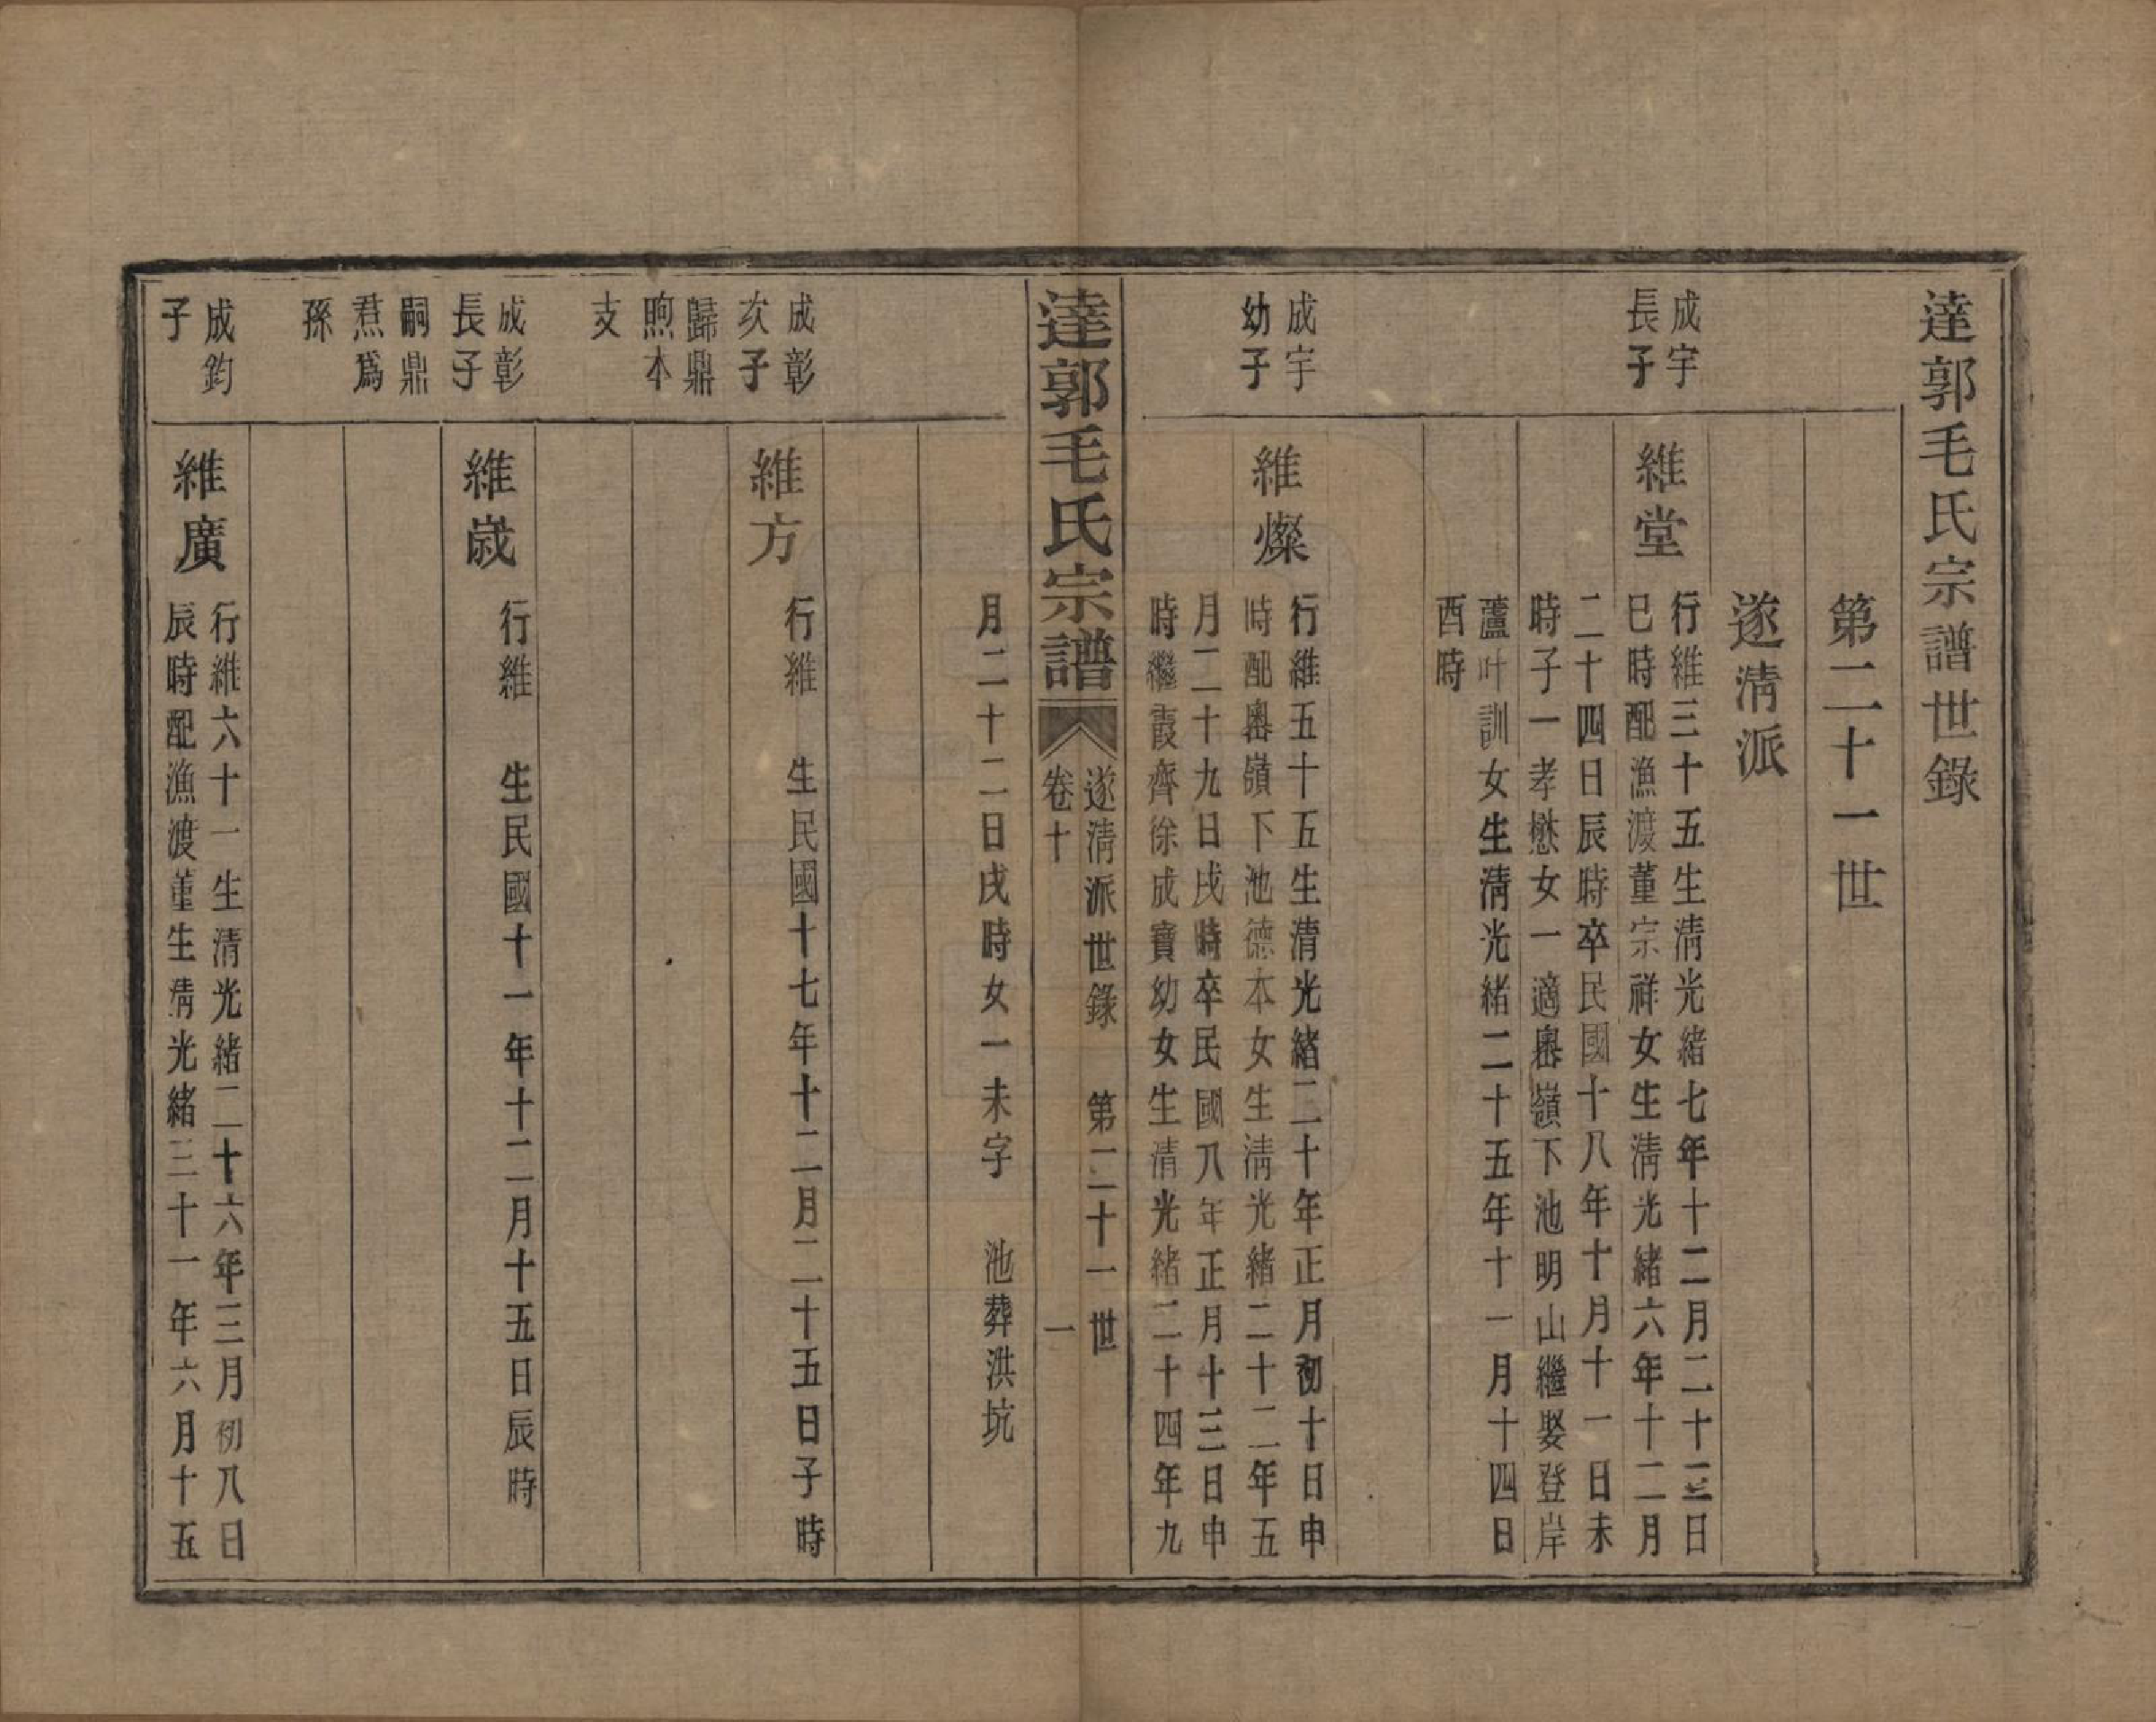 達郭毛氏宗譜世錄
第二十一世
遂清派
成宇
長子
維堂
行維三十五生清光緒七年十二月二十三日
巳時配漁渡董宗祥女生清光緒六年十二月
二十四日辰時卒民國十八年十月十一日未
時子一孝懋女一適嶴嶺下池明山繼娶登岸
蘆叶訓女生清光緒二十五年十一月十四日
酉時
成宇
幼子
維燦
行維五十五生清光緒二十年正月初十日申
時配嶴嶺下池德本女生清光緒二十二年五
月二十九日戌時卒民國八年正月十三日申
時繼霞齊徐成寶幼女生清光緒二十四年九
達郭毛氏宗譜
遂清派世錄 第二十一世
卷十 一
月二十二日戌時女一未字 池葬洪坑
成彰
次子
歸鼎
煦本
支
維方
行維 生民國十七年十二月二十五日子時
成彰
長子
嗣鼎
焄為
孫
維歲
行維 生民國十一年十二月十五日辰時
成鈞
子
維廣
行維六十一生清光緒二十六年三月初八日
辰時配漁渡董生清光緒三十一年六月十五